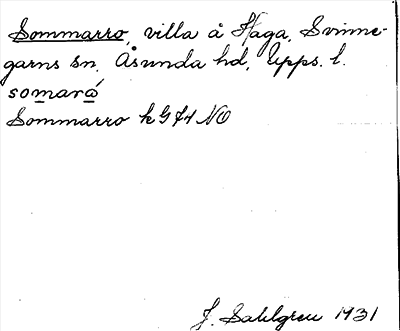 Sommarro, villa å Haga, Svinne-
garns sn, Åsunda hd, Upps. l.
somaró
Sommarro kG 41 NO
J. Sahlgren 1931